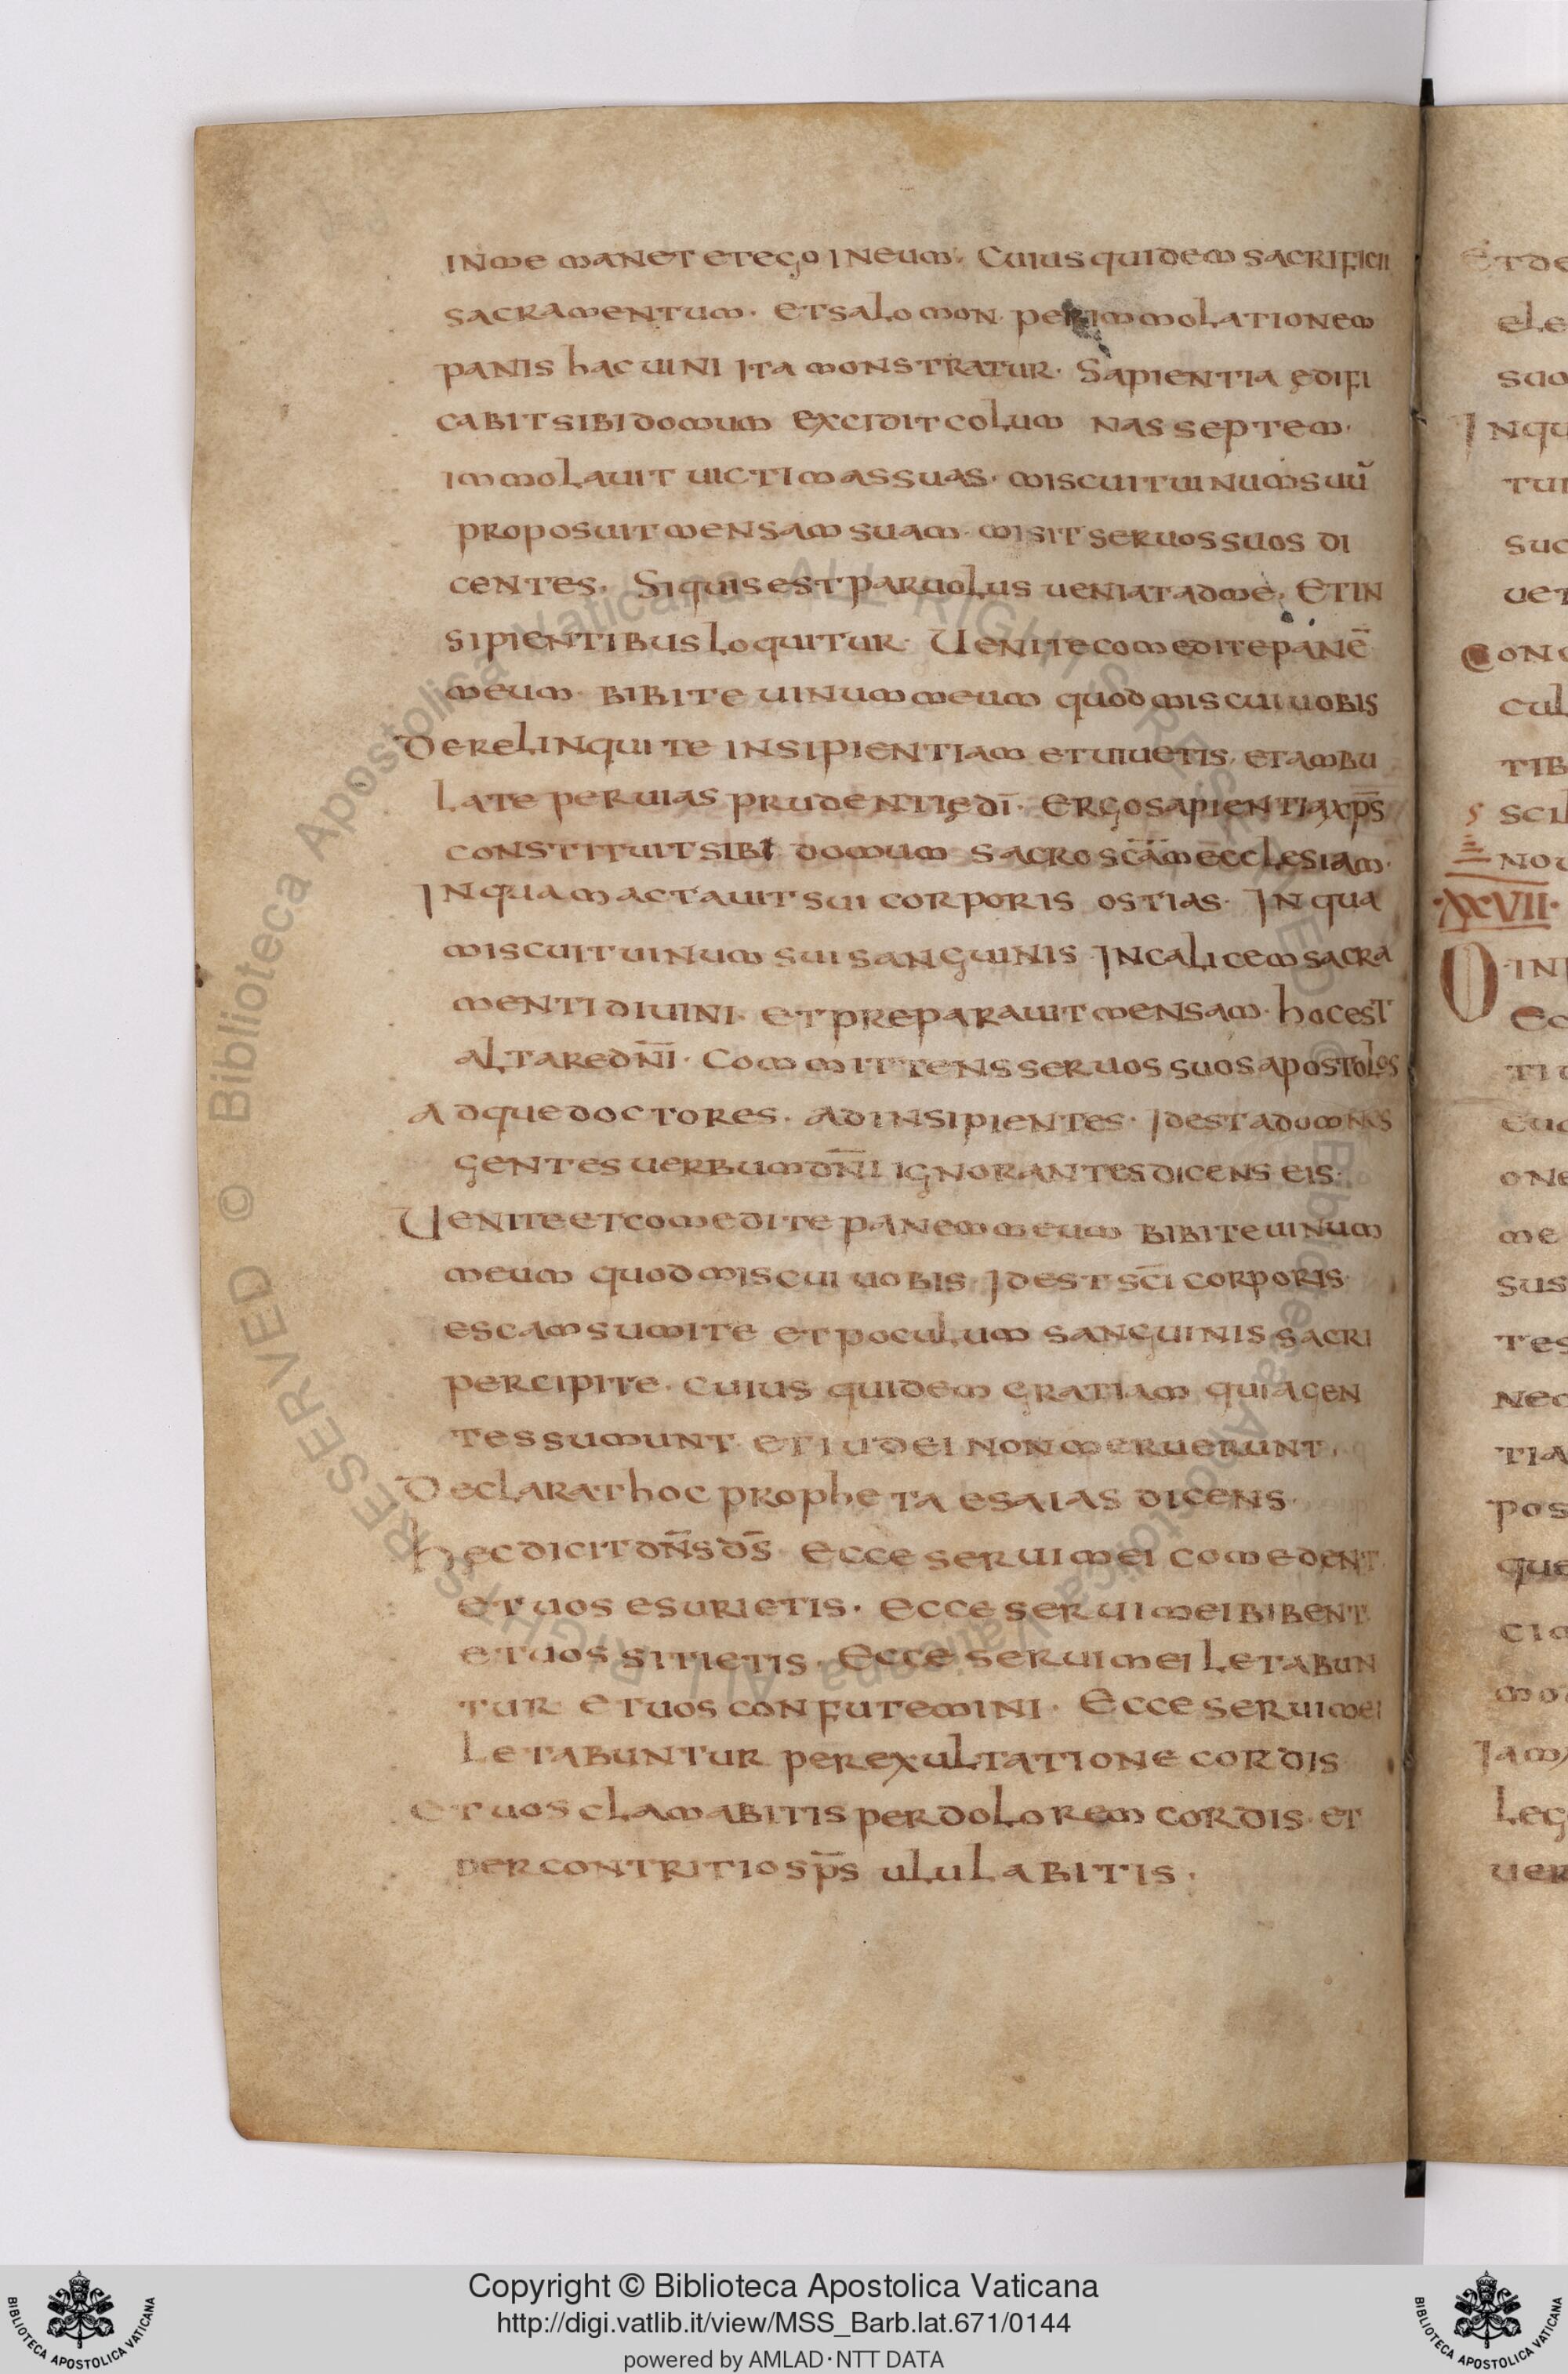 inme manet etego ineum. Cuius quidem sacrificii
sacramentum. et salomon. per immolationem
panis hac uini ita monstratur. Sapientia ędifi
cabit sibi domum excidit colum nas septem.
immolauit uictimas suas. miscuit uinum suū
proposuit mensam suam. misit seruos suos di
centes. Siquis est paruolus ueniat adme. Etin
sipientibus loquitur. Uenite comedite panē
meum. bibite uinum meum quod miscui uobis
Derelinquite insipientiam et uiuetis. et ambu
late per uias prudentię dī. Ergo sapientia xp̄s
constituit sibi domum sacro sc̄am ecclesiam.
In qua mactauit sui corporis ostias. In qua
miscuit uinum sui sanguinis In calicem sacra
menti diuini. et preparauit mensam. hoc est
altare dn̄i. Committens seruos suos apostolos
Adque doctores. ad insipientes. Idest ad omnes
gentes uerbum dn̄i ignorantes dicens eis.
Uenite et comedite panem meum bibite uinum
meum quod miscui uobis. Idest sc̄i corporis
escam sumite et poculum sanguinis sacri
percipite. cuius quidem gratiam quia gen
tes sumunt et iudei non meruerunt.
Declarat hoc propheta esaias dicens.
Hęc dicit dn̄s d̄s. Ecce serui mei comedent.
et uos esurietis. Ecce serui mei bibent
et uos sitietis. Ecce serui mei letabun
tur et uos confutemini. Ecce serui mei
letabuntur per exultatione cordis
Et uos clamabitis per dolorem cordis. et
per contritio sp̄s ululabitis.
Et de
ele
suo
Inqu
tui
suc
uet
Con
cul
tib
scil
nou
·XXVII·
O in
Ec
ti
euc
one
me
sus
tes
nec
tia
pos
que
cio
mo
Iam
leg
uer
© Biblioteca Apostolica Vaticana ALL RIGHTS RESERVED © Biblioteca Apostolica Vaticana ALL RIGHTS RESERVED
Copyright © Biblioteca Apostolica Vaticana
http://digi.vatlib.it/view/MSS_Barb.lat.671/0144
powered by AMLAD·NTT DATA
BIBLIOTECA APOSTOLICA VATICANA
BIBLIOTECA APOSTOLICA VATICANA